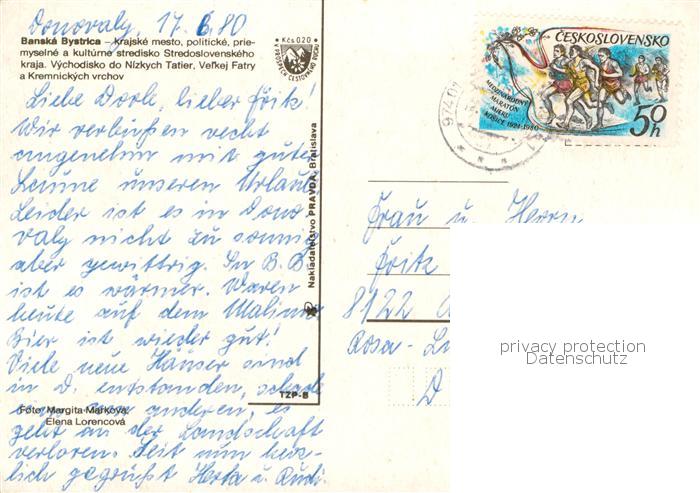 Donovaly, 17.6.80
Banská Bystrica – Krajské mesto, politické, prie-
myselné a kultúrne stredisko Stredoslovenského
kraja. Východisko do Nízkych Tatier, Veľkej Fatry
a Kremnických vrchov
Kčs 0.20
Liebe Dorle, lieber Fritz!
Wir verbußen recht
angenehm mit guter
Laune unseren Urlaub.
Leider ist es in Dono
valy nicht zu sonnig
aber gewittrig. In B.B.
ist es wärmer. Waren
heute auf dem Malino,
Bier ist wieder gut!
Viele neue Häuser sind
in D. entstanden, schade
anderen, es
geht an der Landschaft
verloren. Seit nun herz-
lich gegrüsst Herta u. Rudi.
Foto: Margita Marková,
Elena Lorencová
Nakladateľstvo PRAVDA, Bratislava
TZP-B
ČESKOSLOVENSKO
MEDZINÁRODNÝ
MARATÓN
MIERU
KOŠICE 1924-1980
50h
974 01
Frau u. Herrn
Fritz
8122
Rosa-Lu
D
privacy protection
Datenschutz